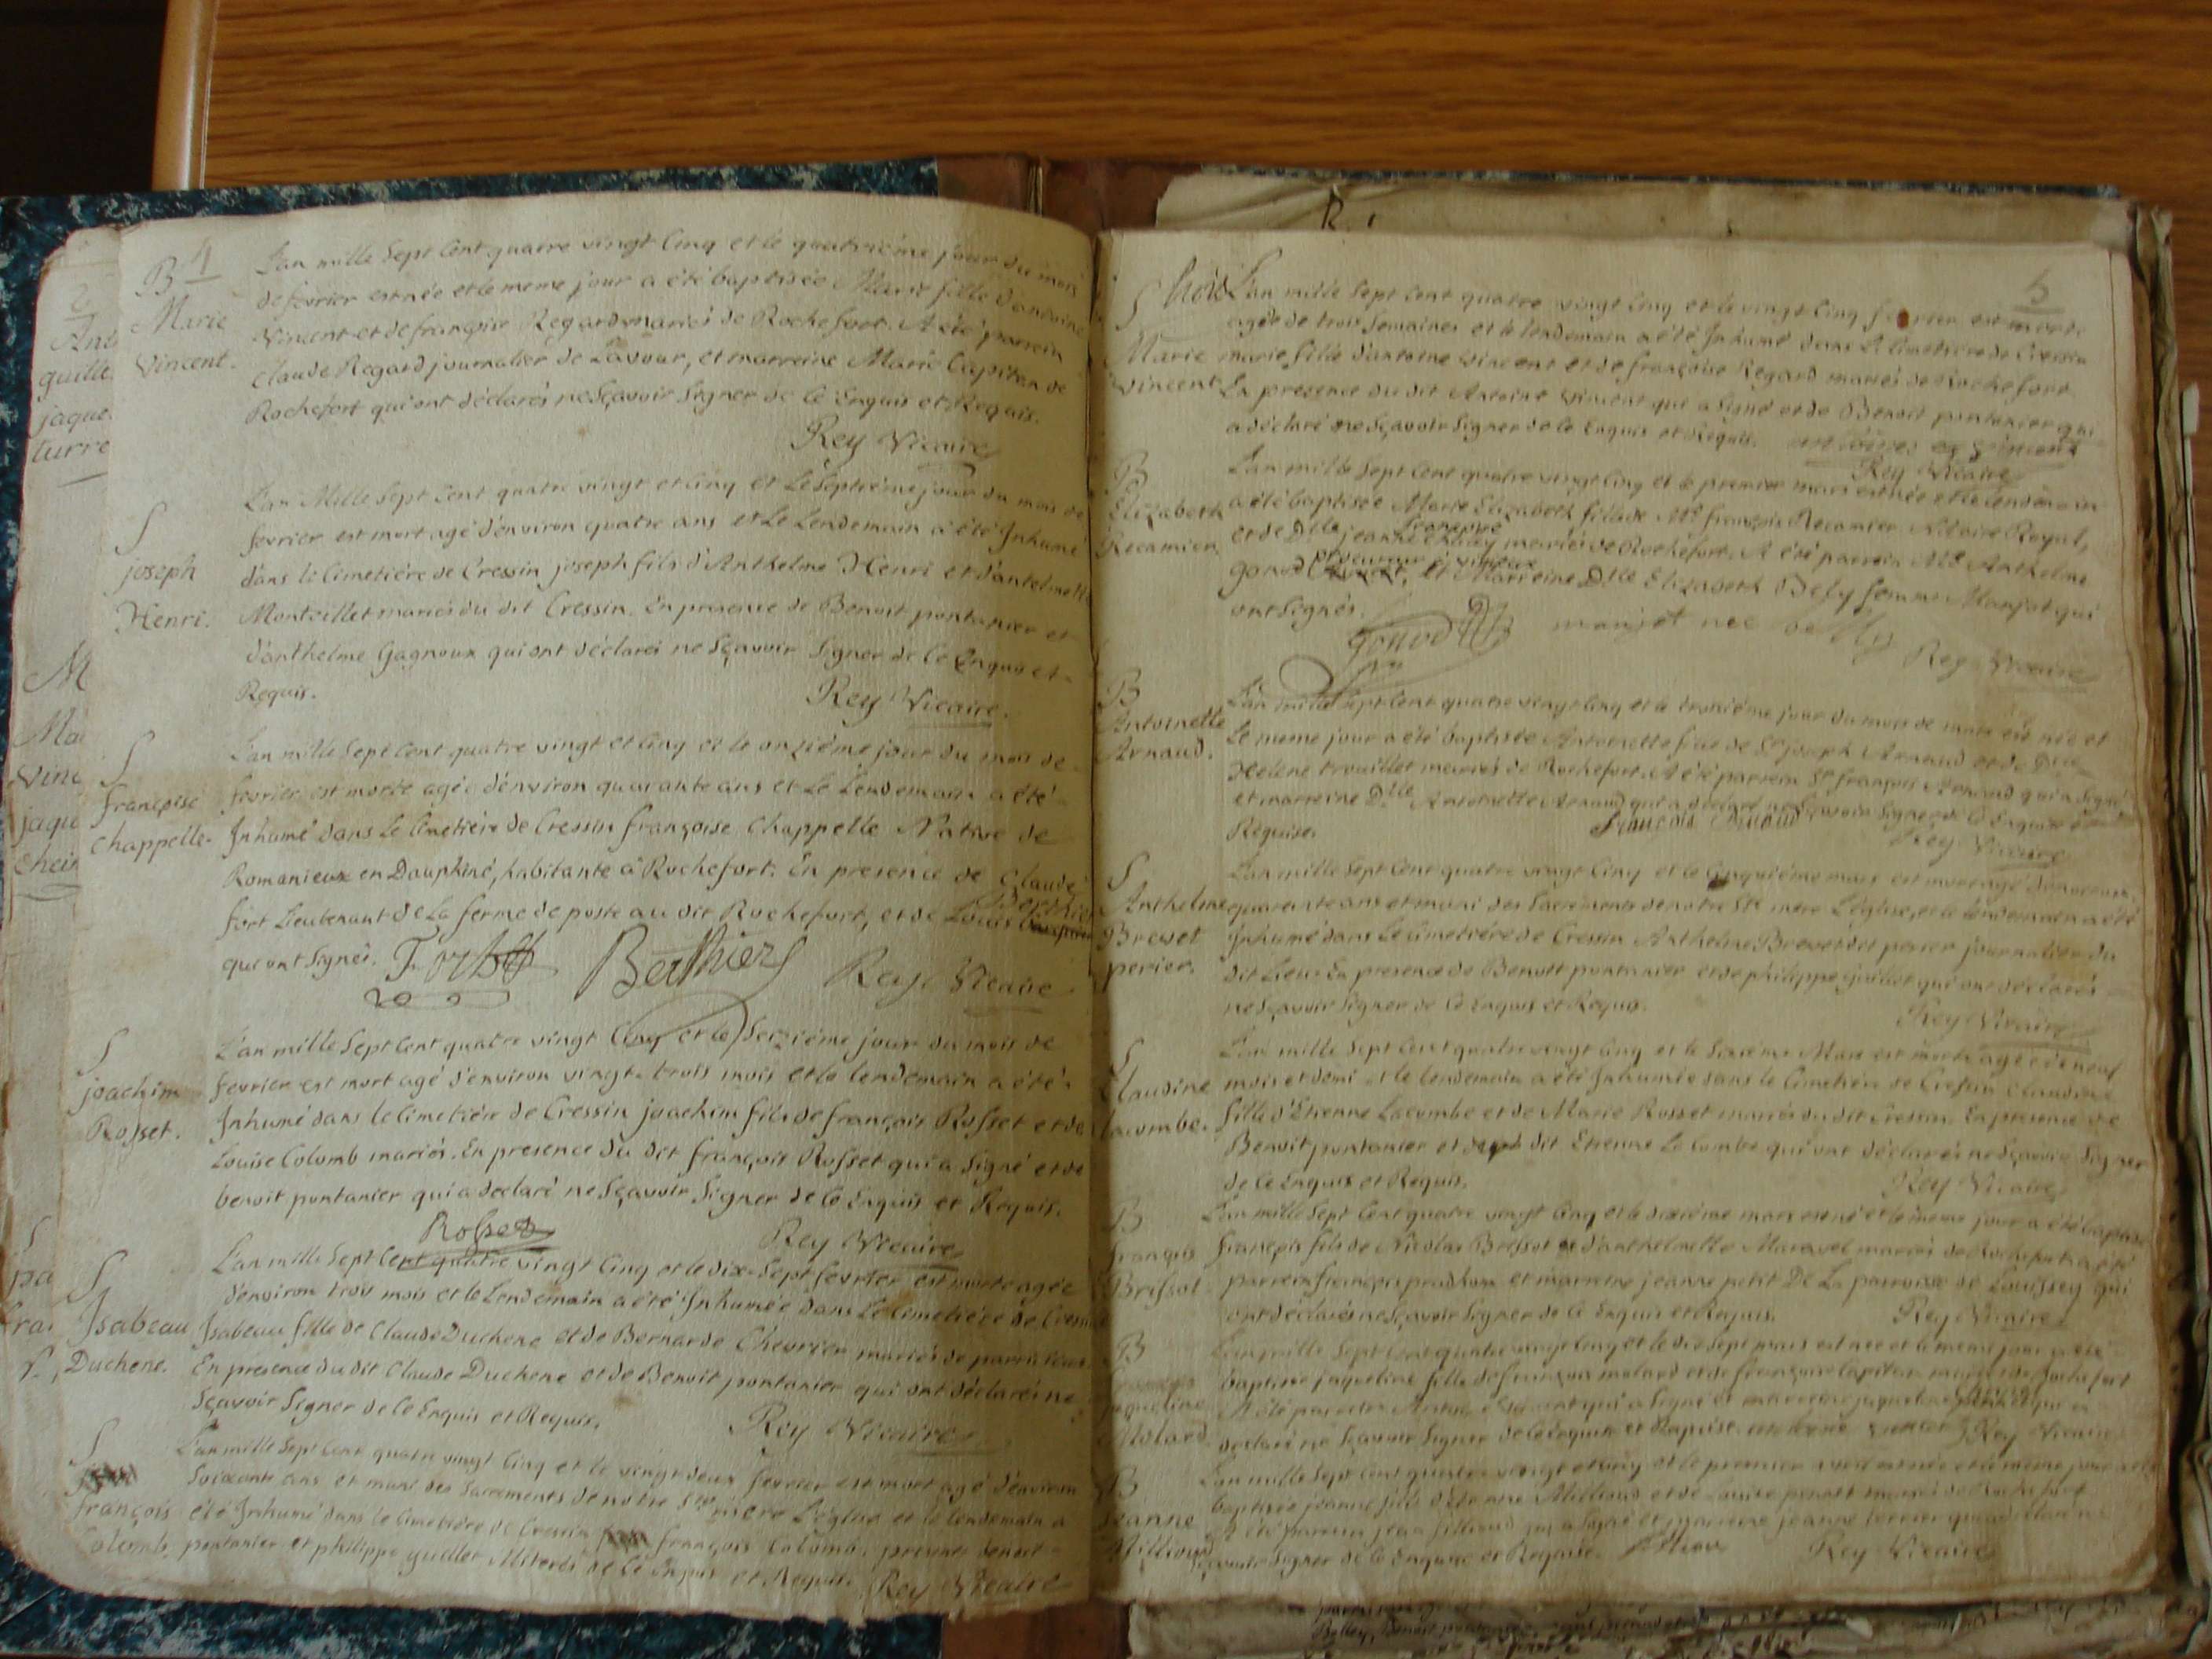 B 4
Marie
Vincent.
L'an mille Sept Cent quatre vingt Cinq et le quatrième jour du mois
de fevrier est née et le meme jour a été baptisée Marie fille d'antoine
Vincent et de françoise Regard mariés de Rochefort. A été parrein
Claude Regard journalier de Lavour, et marreine Marie Capitan de
Rochefort qui ont déclarés ne Sçavoir Signer de ce Enquis et Requis.
Rey Vicaire
S
joseph
Henri.
L'an Mille Sept Cent quatre vingt et Cinq et Le Septième jour du mois de
fevrier est mort agé d'environ quatre ans et Le Lendemain a été Inhumé
dans le Cimetière de Cressin joseph fils d'Anthelme Henri et d'antelmette
Montillet mariés du dit Cressin. En presence de Benoit pontanier et
d'anthelme Gagnoux qui ont déclarés ne Sçavoir Signer de ce Enquis et
Requis.
Rey Vicaire.
S
françoise
Chappelle.
L'an mille Sept Cent quatre vingt et Cinq et le onzième jour du mois de
fevrier est morte agée d'environ quarante ans et Le Lendemain a été
Inhumé dans Le Cimetière de Cressin françoise Chappelle Native de
Romanieux en Dauphiné, habitante à Rochefort. En presence de Claude
Berthier
fort Lieutenant de La ferme de poste au dit Rochefort, et de Louis
qui ont Signés.
Berthier
Rey Vicaire
S
joachim
Rosset.
L'an mille Sept Cent quatre vingt Cinq et le Seizième jour du mois de
fevrier est mort agé d'environ vingt-trois mois et le lendemain a été
Inhumé dans le Cimetière de Cressin joachim fils de françois Rosset et de
Louise Colomb mariés. En presence du dit françois Rosset qui a Signé et de
benoit pontanier qui a declaré ne Sçavoir Signer de ce Enquis et Requis.
Rosset
Rey Vicaire
S
Isabeau
Duchene.
L'an mille Sept Cent quatre vingt Cinq et le dix-Sept fevrier est morte agée
d'environ trois mois et le Lendemain a été Inhumée dans Le Cimetière de Cressin
Isabeau fille de Claude Duchene et de Bernarde Chevrier mariés
En presence du dit Claude Duchene et de Benoit pontanier qui ont déclarés ne
Sçavoir Signer de ce Enquis et Requis.
Rey Vicaire
S
françois
Colomb.
L'an mille Sept Cent quatre vingt Cinq et le vingt deux fevrier est mort agé d'environ
Soixante ans et muni des Sacrements de notre Ste mere L'église et le lendemain a
été Inhumé dans le Cimetière de Cressin françois Colomb. presents benoit
pontanier et philippe guillet Illiterés de ce Enquis et Requis.
Rey Vicaire
5
S
Marie
Vincent
L'an mille Sept Cent quatre vingt Cinq et le vingt-Cinq fevrier est morte
agée de trois Semaines et le lendemain a été Inhumé dans Le Cimetière de Cressin
marie fille d'antoine Vincent et de françoise Regard mariés de Rochefort
En presence du dit Antoine Vincent qui a Signé et de Benoit pontanier qui
a déclaré ne Sçavoir Signer de ce Enquis et Requis.
Rey Vicaire
B
Elizabeth
Recamier
L'an mille Sept Cent quatre vingt Cinq et le premier mars est née et le lendemain
a été baptisée Marie Elizabeth fille de Me françois Recamier Notaire Royal,
et de Dlle jeanne françoise mariés de Rochefort. A été parrein Me Anthelme
gonod et Marreine Dlle Elizabeth Dely femme Manjot qui
ont Signés.
gonod
manjot nee
Rey Vicaire
B
Antoinette
Arnaud.
L'an mille Sept Cent quatre vingt Cinq et le troisième jour du mois de mars est née et
Le meme jour a été baptisée Antoinette fille de Sr joseph Arnaud et de Dlle
Helene trouillet mariés de Rochefort. A été parrein Sr françois Arnaud qui a Signé
et marreine Dlle Antoinette Arnaud qui a déclaré ne Sçavoir Signer de ce Enquise et
Requise.
françois Arnaud
Rey Vicaire
S
Anthelme
Brevet
perier.
L'an mille Sept Cent quatre vingt Cinq et le Cinquième mars est mort agé d'environ
quarante ans et muni des Sacrements de notre Ste mere L'église, et le lendemain a été
Inhumé dans Le Cimetière de Cressin Anthelme Brevet dit perier journalier du
dit Lieu. En presence de Benoit pontanier et de philippe guillet qui ont déclarés
ne Sçavoir Signer de ce Enquis et Requis.
Rey Vicaire
S
Claudine
lacombe.
L'an mille Sept Cent quatre vingt Cinq et le Sixième Mars est morte agée de neuf
mois et demi et le lendemain a été Inhumée dans le Cimetière de Cressin Claudine
fille d'Etienne Lacombe et de Marie Rosset mariés du dit Cressin. En presence de
Benoit pontanier et du dit Etienne La Combe qui ont déclarés ne Sçavoir Signer
de ce Enquis et Requis.
Rey Vicaire
B
françois
Brissot
L'an mille Sept Cent quatre vingt Cinq et le dixième mars est né et le meme jour a été baptisé
françois fils de Nicolas Brissot et d'anthelmette Maravel mariés de Rochefort a été
parrein françois prudhon et marreine jeanne petit De La parroisse de Loüissey qui
ont déclarés ne Sçavoir Signer de ce Enquis et Requis.
Rey Vicaire
B
jaqueline
Molard
L'an mille Sept Cent quatre vingt Cinq et le dix Sept mars est née et le meme jour a été
baptisée jaqueline fille de françois molard et de françoise Capitan mariés de Rochefort
A été parrein Antoine Vincent qui a Signé et marreine jaqueline qui a
déclaré ne Sçavoir Signer de ce Enquise et Requise.
Rey Vicaire
B
Jeanne
Millioud
L'an mille Sept Cent quatre vingt et Cinq et le premier avril est née et le meme jour a été
baptisée jeanne fille d'Etienne Millioud et de Louise mariés de Rochefort
A été parrein jean Millioud qui a Signé et marreine jeanne qui a déclaré ne
Sçavoir Signer de ce Enquise et Requise.
Rey Vicaire